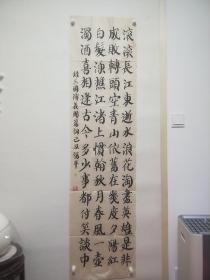 滾滾長江東逝水浪花淘盡英雄是非
成敗轉頭空青山依舊在幾度夕陽紅
白髮漁樵江渚上慣看秋月春風一壺
濁酒喜相逢古今多少事都付笑談中
錄三國演義開篇詞己丑